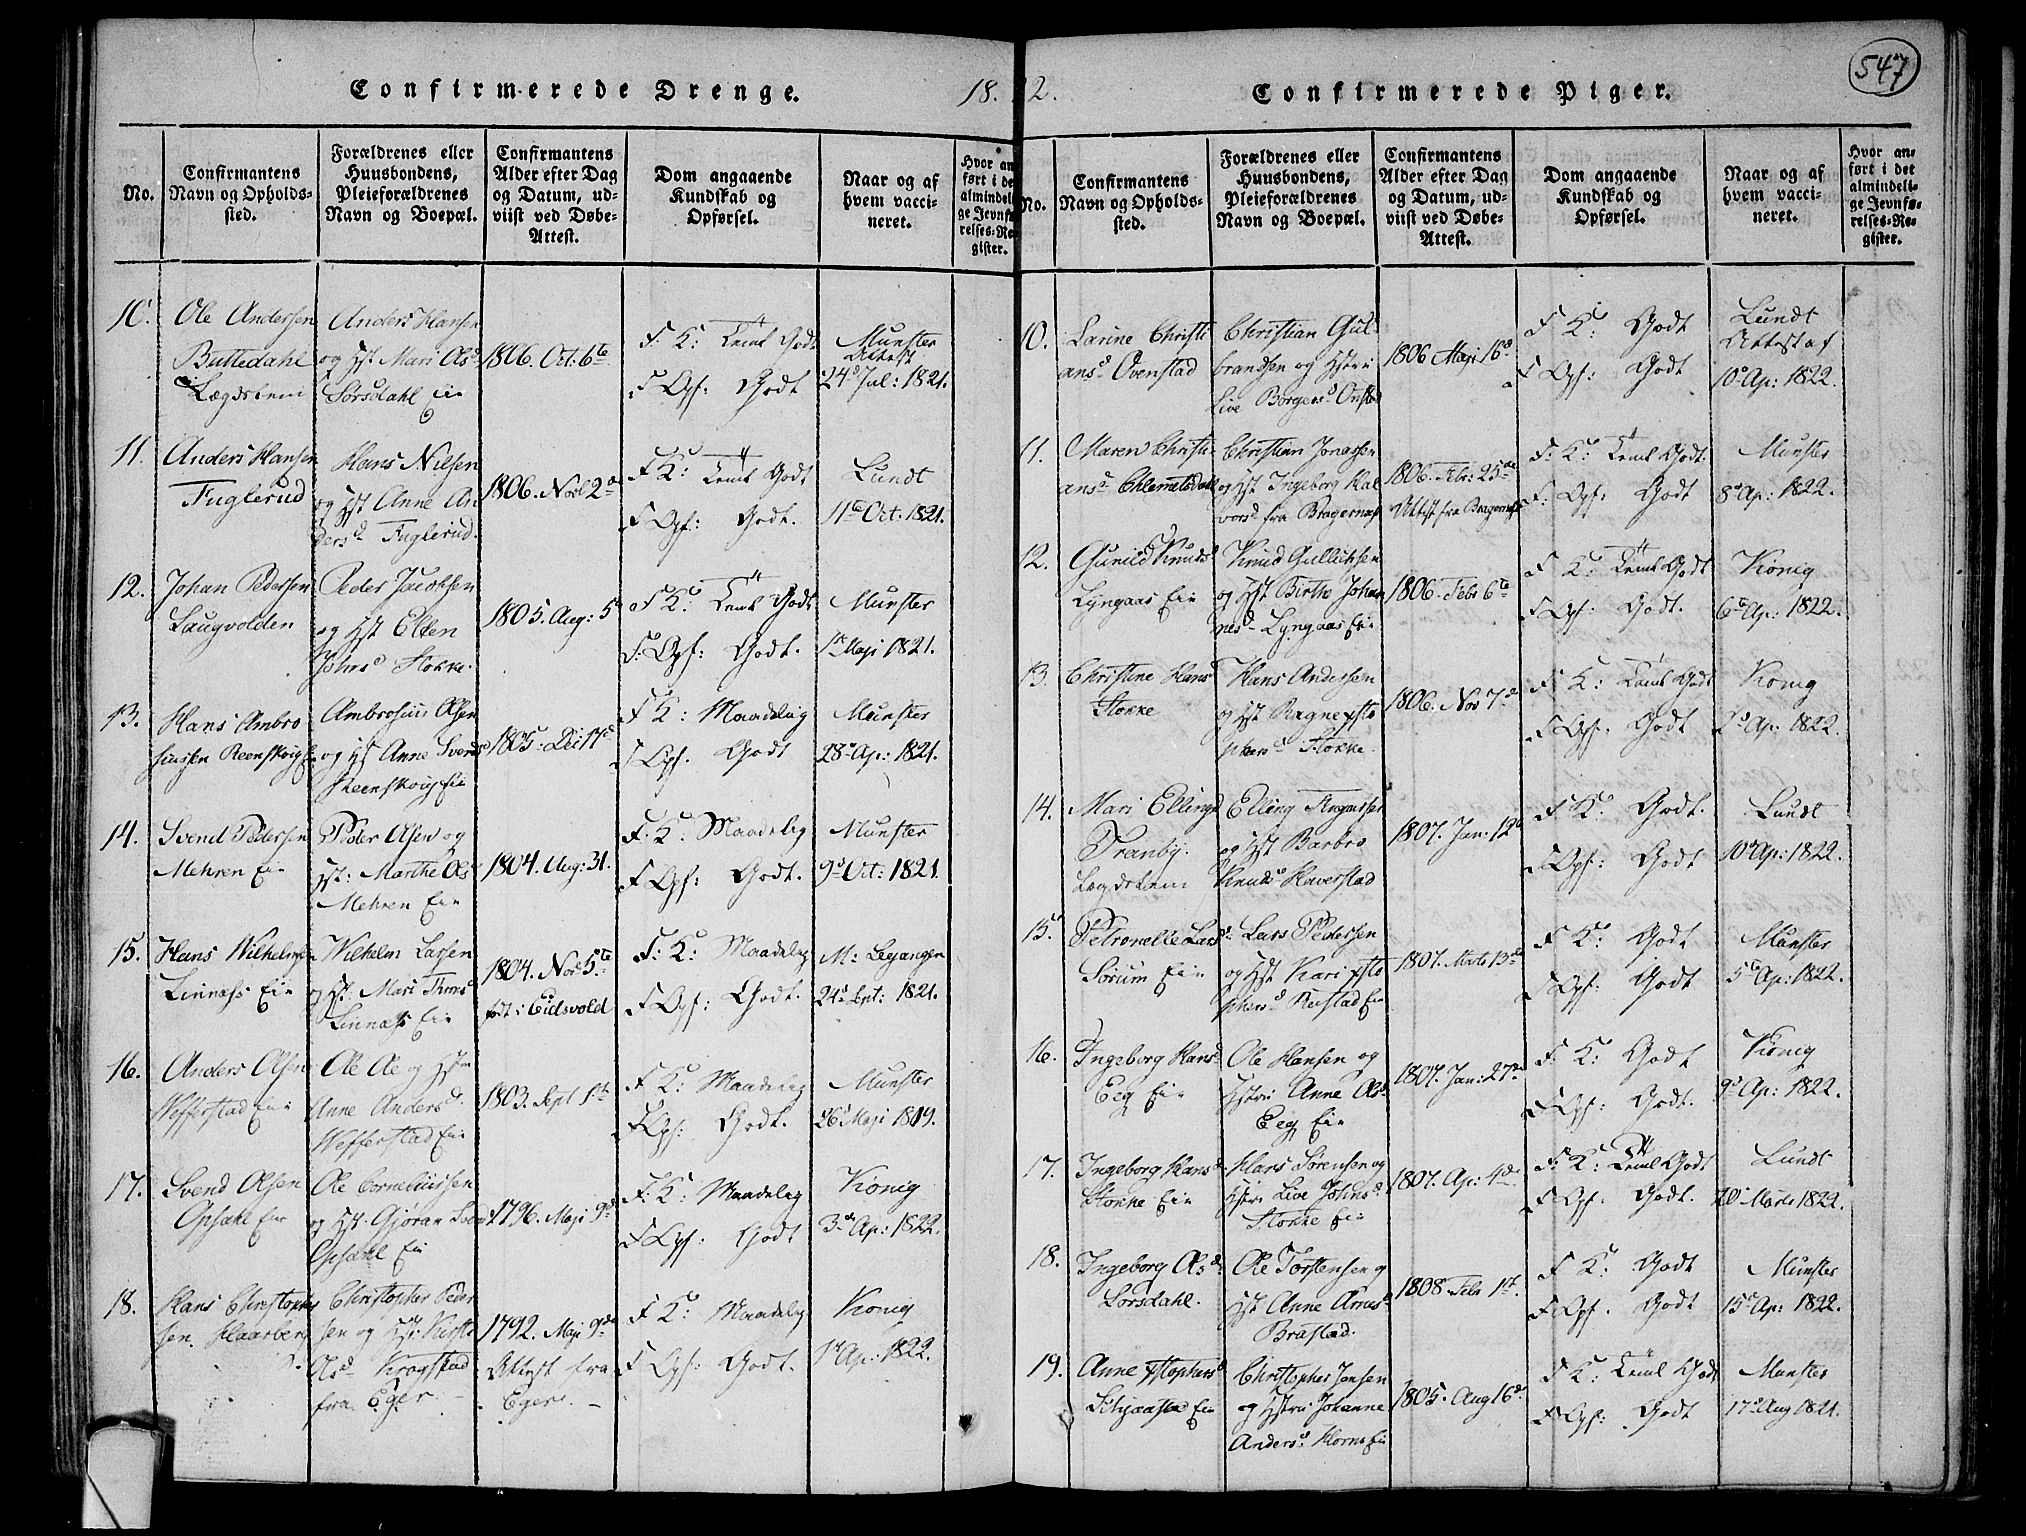 547
Confirmerede Drenge.
18.22.
No.
Confirmantens
Navn og Opholds-
sted.
Forældrenes eller
Huusbondens,
Pleieforældrenes
Navn og Boepæl.
Confirmantens
Alder efter Dag
og Datum, ud-
viist ved Døbe-
Attest.
Dom angaaende
Kundskab og
Opførsel.
Naar og af
hvem vacci-
neret.
Hvor an
ført i de
almindel
ge Jevnf
relses-Re
gister.
10.
Ole Andersen
Buttedahl
Lægdslem
Anders Hansen
og Hst Mari Olsd
Sørsdahl Eie
1806. Oct. 6te
F. K: Teml Godt
F Opf: Godt
Munster
Attest
24d Jul: 1821.
11.
Anders Hansen
Fuglerud
Hans Nilsen
og Hst Anne An
dersd Fuglerud.
1806. Nov 2
F K: Teml Godt
F Opf: Godt.
Lundt
11te Oct: 1821.
12.
Johan Pedersen
Laugvolden
Peder Jacobsen
og Hst Ellen
Johnsd Stokke.
1805. Aug: 5
F K: Teml Godt
F: Opf: Godt.
Munster
1te Maji 1821.
13.
Hans Ambro
siusen Reenskoug E
Ambrosius Olsen
og Hst Anne Svends
Reenskoug Eie
1805. Dec 17d
F K: Maadelig
F Opf. Godt
Munster
28d Ap: 1821.
14.
Svend Pedersen
Mehren Eie
Peder Olsen og
Hst: Marthe Ols
Mehren Eie
1804. Aug: 31.
F. K: Maadelig
F Opf: Godt.
Munster
9d Oct: 1821.
15.
Hans Wilhelmsen
Linnæss Eie
Wilhelm Larsen
og Hst. Mari Thms
Linnæss Eie
1804. Nov 5te
født i Eidsvold
F. K: Maadelig
F Opf: Godt.
M: Leganger
24d Sept: 1821.
16.
Anders Olsen
Wefferstad Eie
Ole Ole og Hst
Anne Andersd.
Wefferstad Eie
1803. Sept 1te
F K: Maadelig
F Opf: Godt.
Munster
26d Maji 1819.
17.
Svend Olsen
Opsahl Eie
Ole Corneliussen
og Hst. Gjøran Svend
Opsahl Eie
1796. Maji 9de
F. K: Maadelig
F Opf: Godt
Konig
3de Ap: 1822.
18.
Hans Christopher
sen. Haarberg
Christopher Peder
sen og Hst: Kirsti
Olsd Krogstad
fra Eger.
1792. Maji 9de
Attest fra
Eger.
F K: Maadelig
F Opf: Godt.
Konig
1te Ap: 1822.
Confirmerede Piger.
No.
Confirmantens
Navn og Opholds-
sted.
Forældrenes eller
Huusbondens,
Pleieforældrenes
Navn og Boepæl.
Confirmantens
Alder efter Dag
og Datum, ud-
viist ved Døbe-
Attest.
Dom angaaende
Kundskab og
Opførsel.
Naar og af
hvem vacci-
neret.
Hvor an-
ført i det
almindeli-
ge Jevnfø-
relses-Re-
gister.
10.
Larine Christi
ansd Ovenstad
Christian Gul-
brandsen og Hstru
Live Borgersd Onstad
1806 Maji 16d
F K: Godt
F Opf: Godt
Lundt
Attest af
10d Ap: 1822.
11.
Maren Christi
ansd Chlemetsdahl
Christian Jonassen
og Hst Ingeborg Hal
vorsd fra Bragernæs
1806. Feb: 25de
Attest fra Bragernæs
F. K: Teml Godt.
F: Opf: Godt
Munster
8d Ap: 1822.
12.
Gunild Knuds
Lyngaas Eie
Knud Gullichsen
og Hst Birthe Johan
nesd Lyngaas Eie
1806. Feb 6te
F K: Teml Godt
F Opf: Godt.
Konig
6te Ap: 1822.
13.
Christine Hansd
Stokke
Hans Andersen
og Hst Ragne Xsto
phersd Stokke.
1806. Nov 7d
F K: Teml Godt
F Opf: Godt
Konig
Ap: 1822.
14.
Mari Ellingsd
Tranby.
Lægdslem
Elling
og Hst Barbro
Knudsd Haverstad
1807. Jan: 12te
F K: Godt.
F Opf: Godt
Lundt
10d Ap: 1822.
15.
Petronelle Larsd.
Sørum Eie
Lars Pedersen
og Hst Kari Xsto
phersd Restad Eie
1807. Marts 13de
F K: Godt
F Opf: Godt
Munster
5te Ap: 1822.
16.
Ingeborg Hansd
Eeg Eie
Ole Hansen og
Hstru Anne Olsd
Eeg Eie
1807. Jan: 27de
F K: Godt
F Opf: Godt.
Konig
9d Ap: 1822.
17.
Ingeborg Hansd.
Stokke Eie
Hans Sørensen og
Hstru Live Johnsd.
Stokke Eie
1807. Ap: 4de
F. K: Teml Godt
F Opf: Godt.
Lundt
20d Marts 1822.
18.
Ingeborg Olsd.
Lorsdahl.
Ole Torstensen og
Hst Anne Arnesd
Brastad.
1808 Feb 1te.
F K: Godt
F Opf. Godt
Munster
15d Ap: 1822.
19.
Anne Xstophersd
Eie
Christopher Jensen
og Hstru Johanne
Andersd. Horns Eie
1805. Aug 16d.
F K: Teml Godt
F Opf: Godt
Munster
17d Aug 1821.